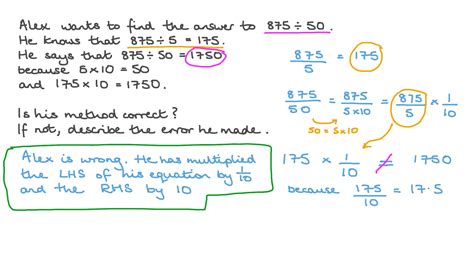 Alex wants to find the answer to 875 ÷ 50.
He knows that 875 ÷ 5 = 175.
He says that 875 ÷ 50 = 1750
because 5 × 10 = 50
and 175 × 10 = 1750.
Is his method correct?
If not, describe the error he made.
Alex is wrong. He has multiplied
the LHS of his equation by 1/10
and the RHS by 10
875/5 = 175
875/50 = 875/5×10 = 875/5 × 1/10
50 = 5×10
175 × 1/10 ≠ 1750
because 175/10 = 17.5